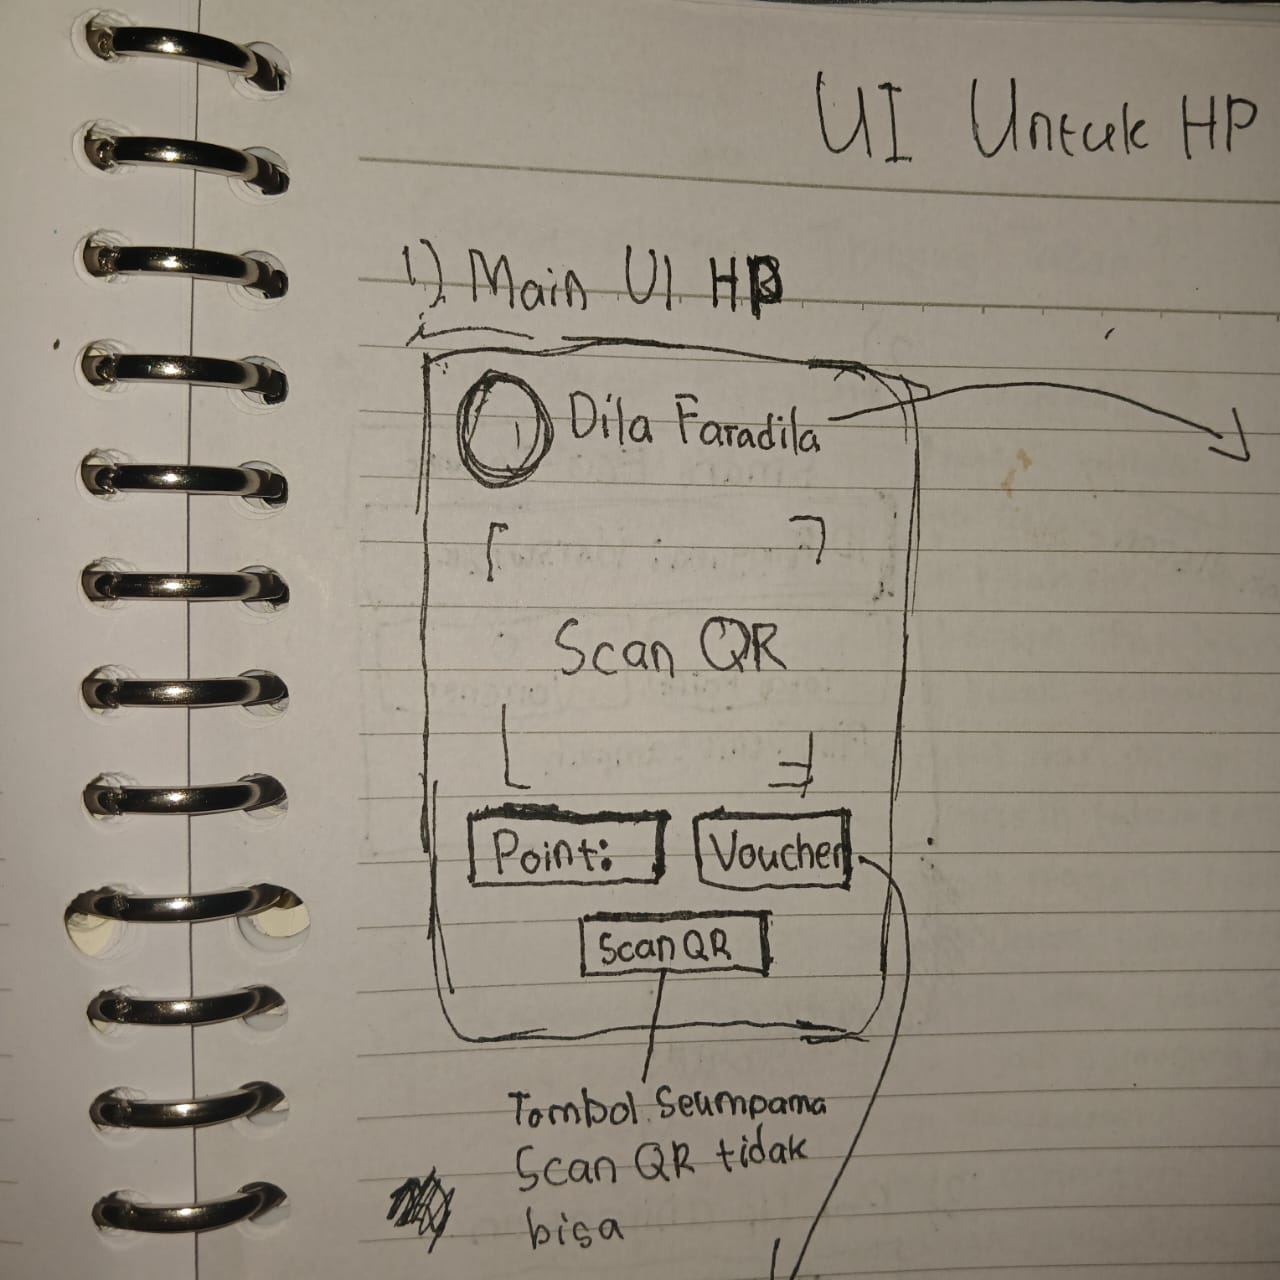 UI Untuk HP
1.) Main UI HP
Dila Faradila
Scan QR
Point:
Voucher
Scan QR
Tombol Seumpama
Scan QR tidak
bisa